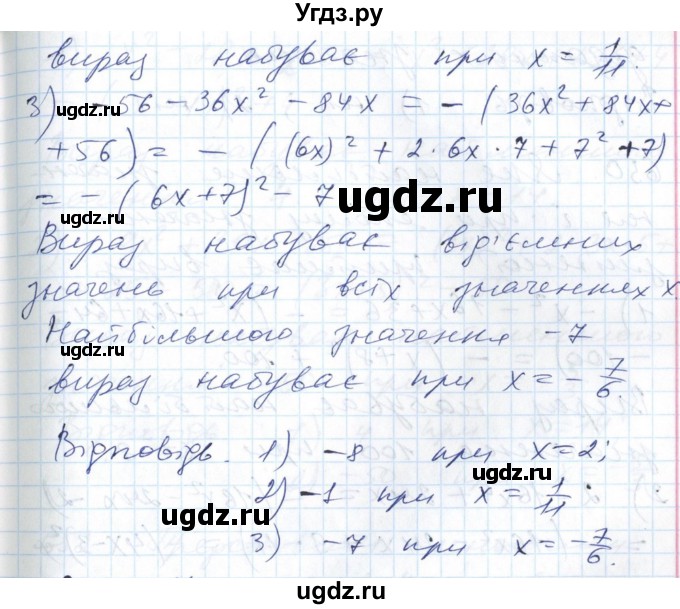 Угдз.ру
вираз набуває при x = 1/11.
3) -56 - 36x² - 84x = - (36x² + 84x +
+ 56) = - ((6x)² + 2·6x·7 + 7² + 7)
= - (6x+7)² - 7
Вираз набуває від'ємних
значень при всіх значеннях x.
Найбільшого значення -7
вираз набуває при x = - 7/6.
Відповідь. 1) -8 при x = 2;
2) -1 при x = 1/11;
3) -7 при x = - 7/6.
ugdz.ru
ugdz.ru
ugdz.ru
ugdz.ru
ugdz.ru
ugdz.ru
ugdz.ru
ugdz.ru
ugdz.ru
ugdz.ru